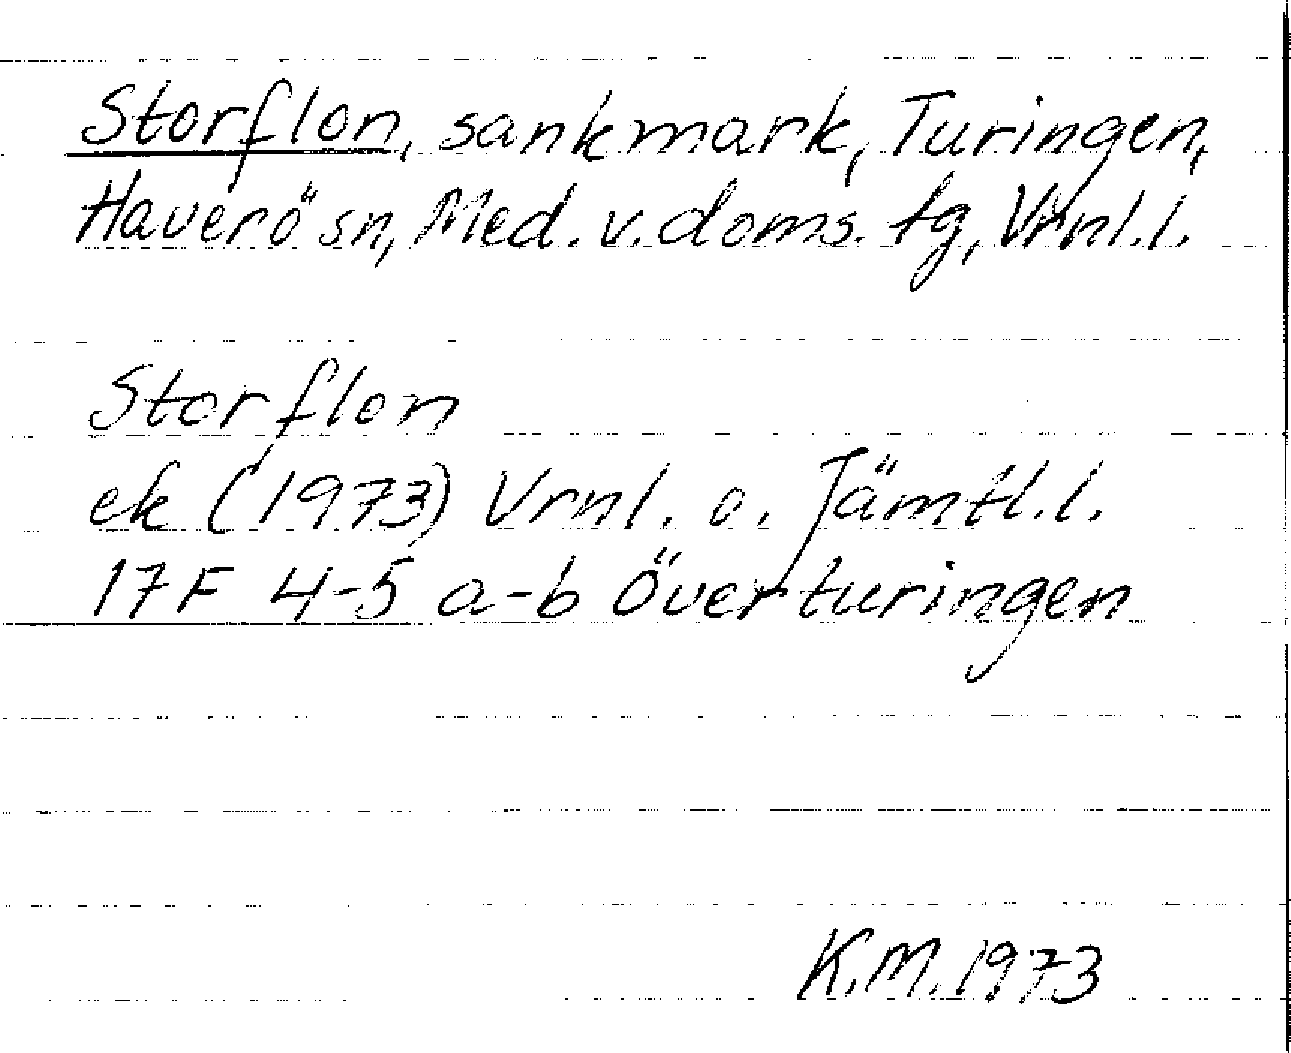 Storflon, sankmark, Turingen,
Haverö sn, Med. v. doms. tg, Vrnl. l.
Storflon
ek (1973) Vrnl. o. Jämtl. l.
17F 4-5 a-b Överturingen
K.M. 1973